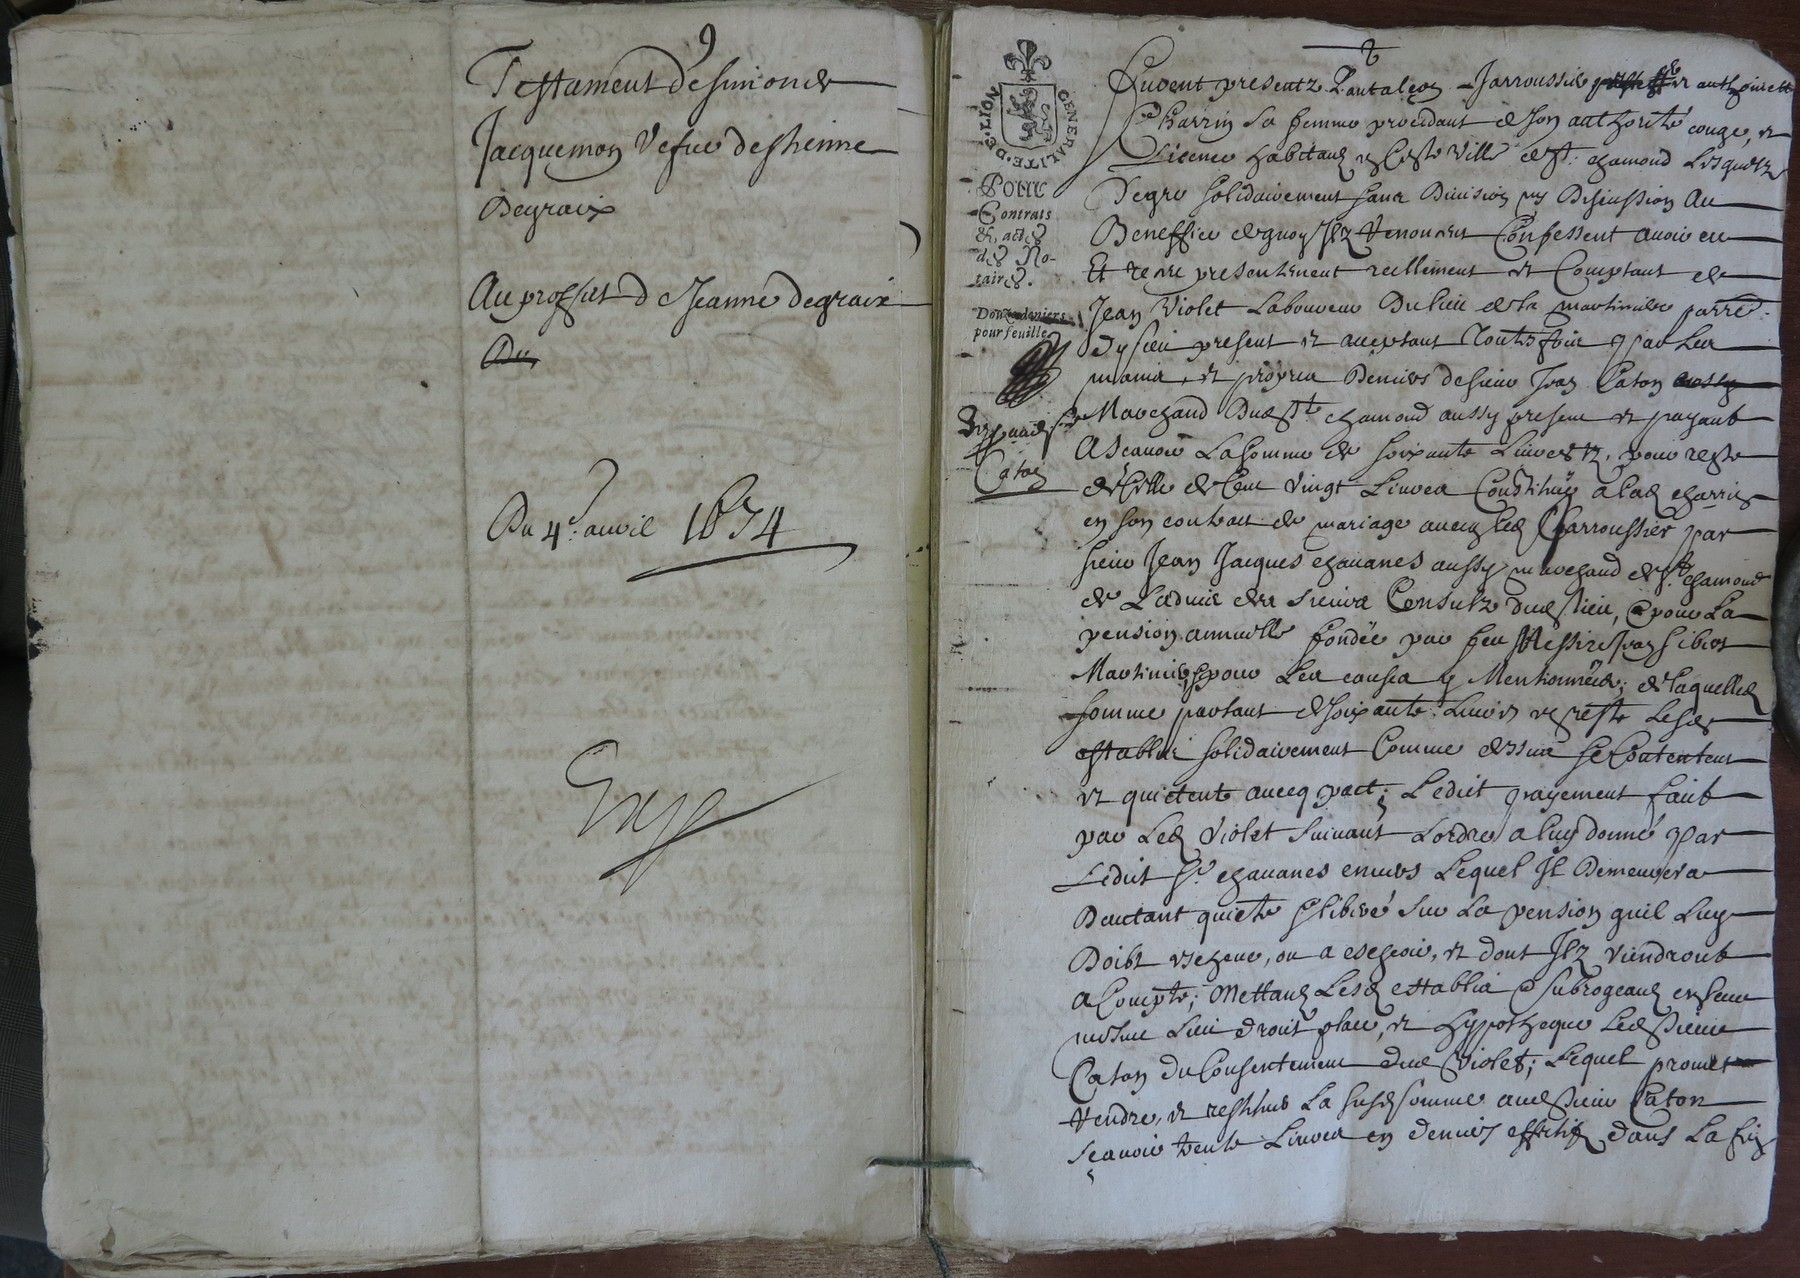 9
Testament de simonde
Jacquemon vefue destienne
Degraix
Au proffict de Jeanne degraix
Du
Du 4e. auril 1674
GENERALITE·DE·LION
Pour
Contrats
& actes
des No-
taires.
Douze deniers
pour feuille
Caton
furent presentz Pantaleon Jarroussier et anthoinette
Charrin sa femme procedant de son authorité conge, et
Licence habitans en ceste ville de St. chamond Lesquelz
Degre solidairement sans Diuision ny Discussion Au
Beneffice de quoy Ilz Renoncent Confessent auoir eu
Et receu presentement reellement et Comptant de
Jean Violet Laboureur Du lieu de la martiniere parre.
present et acceptant Toutesfois par Les
mains, et propres Deniers de sieur Jean Caton aussy
Marchand Dud St. chamond aussy present et payant
A Scauoir La somme de soixante Liures tz, pour reste
de Celle de Cent vingt Liures Constituée a lad charrin
en son contract de mariage auecq led Jarroussier par
sieur Jean Jacques chauanes aussy marchand de St. chamond
de Laduis des sieurs Consulz dud lieu, pour La
pension annuelle fondée par feu Messire Jean
Martinier, pour Les causes y Mentionnées; de laquelle
somme partant de soixante Liures de reste Lesd
establis solidairement Comme dessus se Contentent
et quictent auecq pact; Ledict payement faict
par Led Violet suiuant Lordre a luy donné par
Ledict Sr. chauanes enuers Lequel Il Demeurera
Dautant quicte & liberé sur La pension quil Luy
Doibt escheue, ou a escheoir, et dont Ilz viendront
a Compte; Mettans Lesd establis & subrogeans en leur
mesme Lieu droit place, et hypotheque Led sieur
Caton du Consentement dud Violet; Lequel promet
Rendre, et restituer La susd somme aud sieur Caton
scauoir trente Liures en deniers effectifz dans La fin